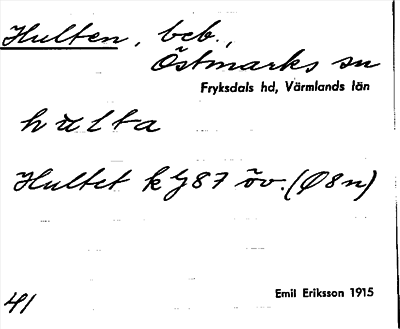 Hulten, beb.,
Östmarks sn
Fryksdals hd, Värmlands län
hulta
Hultet k G87 öv. (Ø8n)
41
Emil Eriksson 1915